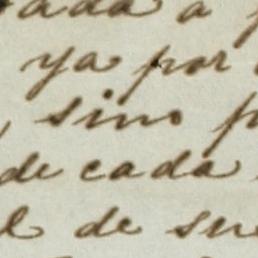 ada a
ya por
, sino p
de cada
l de su